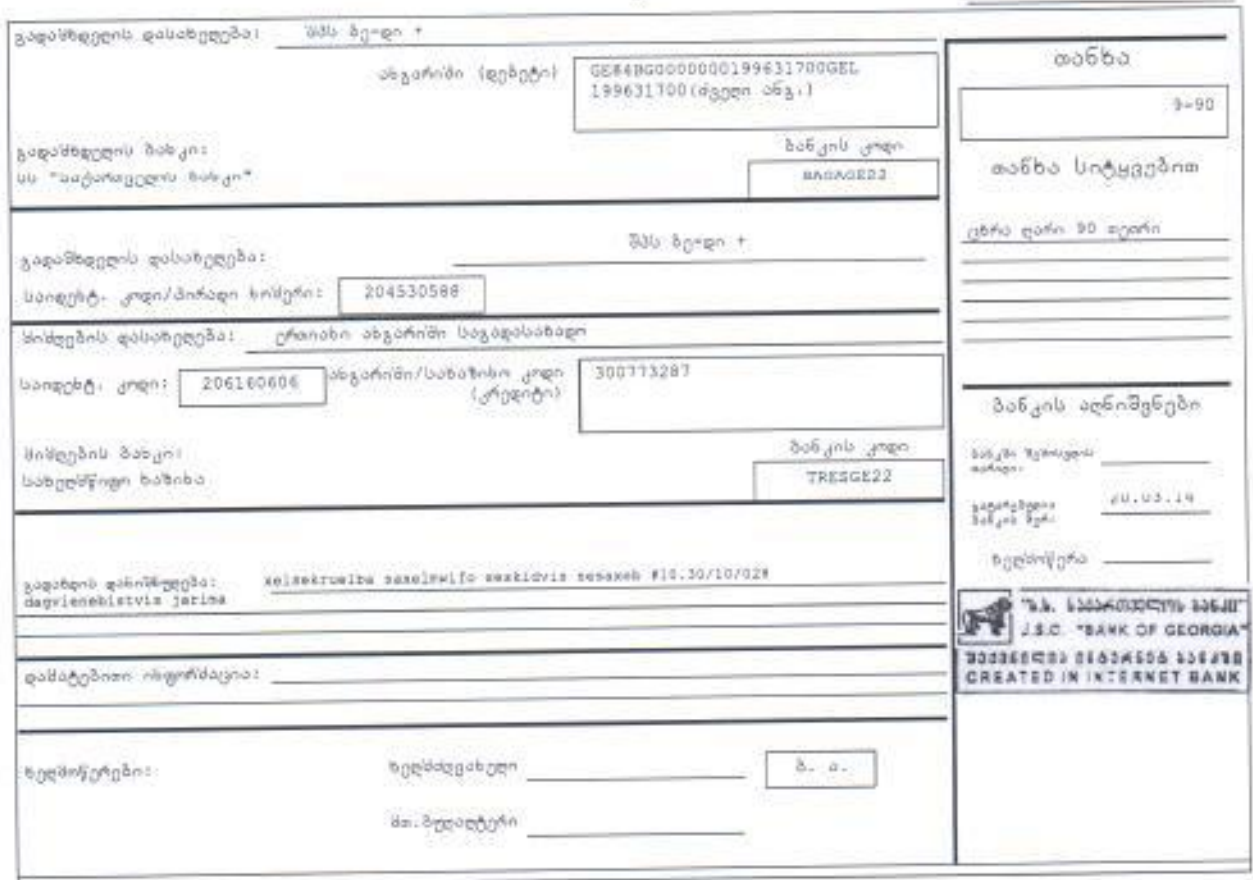 გადამხდელის დასახელება: შპს ბე-დი +
ანგარიში (დებეტი) GE84BG0000000199631700GEL
199631700(ძველი ანგ.)
გადამხდელის ბანკი:
სს "საქართველოს ბანკი"
ბანკის კოდი
BAGAGE22
გადამხდელის დასახელება: შპს ბე-დი +
საიდენტ. კოდი/პირადი ნომერი: 204530588
მიმღების დასახელება: ერთიანი ანგარიში საგადასახადო
საიდენტ. კოდი: 206160606 ანგარიში/სახაზინო კოდი
(კრედიტი) 300773287
მიმღების ბანკი:
სახელმწიფო ხაზინა
ბანკის კოდი
TRESGE22
გადახდის დანიშნულება: xelsekruelba saxelmwifo seskidvis sesaxeb #10.30/10/02#
dagvienebistvis jarima
დამატებითი ინფორმაცია:
ხელმოწერები: ხელმძღვანელი
ბ. ა.
მთ.ბუღალტერი
თანხა
9-90
თანხა სიტყვებით
ცხრა ლარი 90 თეთრი
ბანკის აღნიშვნები
ბანკში შემოსვლის
თარიღი:
გატარებულია
ბანკის მერ:
ხელმოწერა
"ს.ს. საქართველოს ბანკი"
J.S.C. "BANK OF GEORGIA"
შექმნილია ინტერნეტ ბანკში
CREATED IN INTERNET BANK